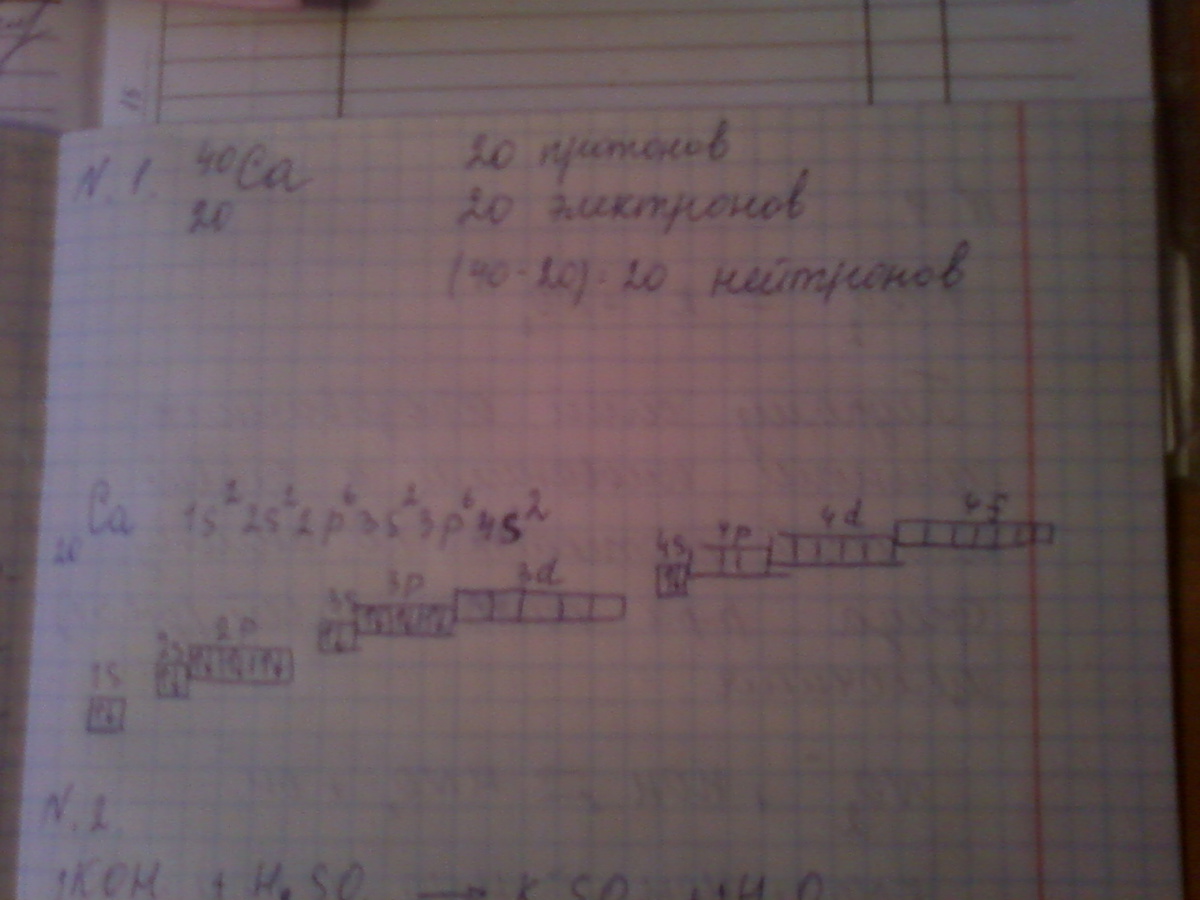 N. 1. ⁴⁰Ca 20 протонов
20 20 электронов
(40-20)·20 нейтронов
₂₀Ca 1s²2s²2p⁶3s²3p⁶4s²
4s 4p 4d 4f
3s 3p 3d
2s 2p
1s
N. 2
KOH + H₂SO → K SO H O